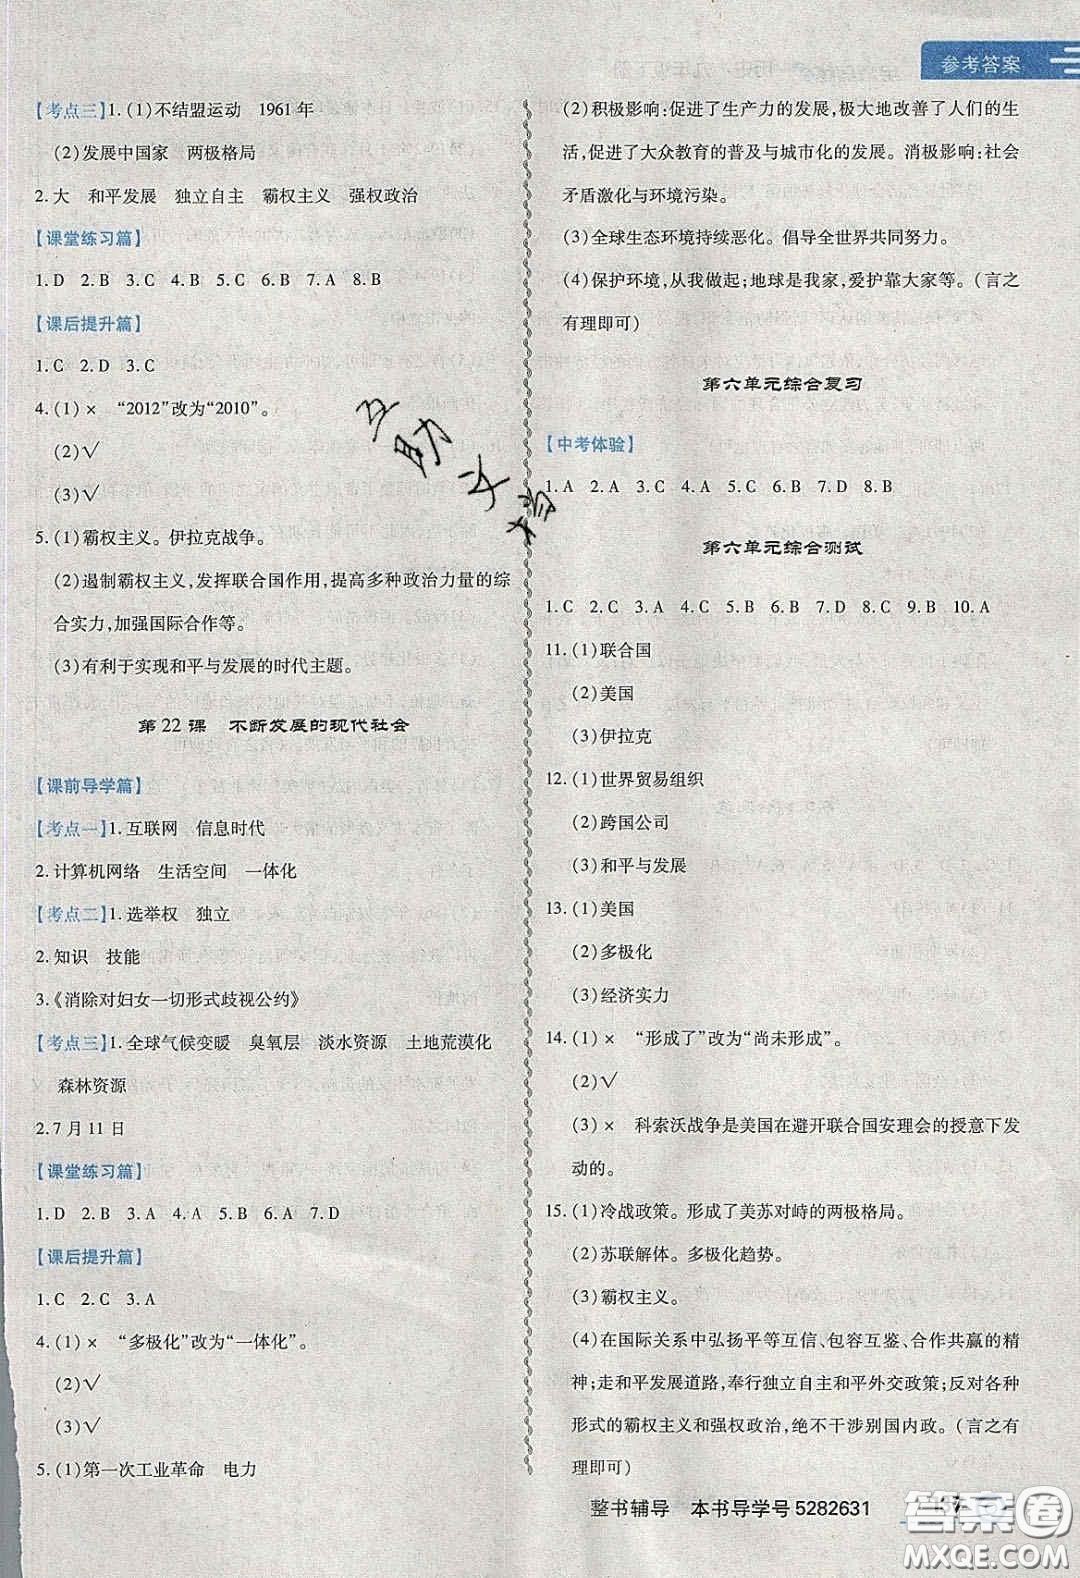 参考答案
【考点三】1.(1)不结盟运动 1961年
(2)发展中国家 两极格局
2.大 和平发展 独立自主 霸权主义 强权政治
【课堂练习篇】
1.D 2.B 3.C 4.B 5.C 6.B 7.A 8.B
【课后提升篇】
1.C 2.D 3.C
4.(1)× “2012”改为“2010”。
(2)√
(3)√
5.(1)霸权主义。伊拉克战争。
(2)遏制霸权主义,发挥联合国作用,提高多种政治力量的综
合实力,加强国际合作等。
(3)有利于实现和平与发展的时代主题。
第22课 不断发展的现代社会
【课前导学篇】
【考点一】1.互联网 信息时代
2.计算机网络 生活空间 一体化
【考点二】1.选举权 独立
2.知识 技能
3.《消除对妇女一切形式歧视公约》
【考点三】1.全球气候变暖 臭氧层 淡水资源 土地荒漠化
森林资源
2.7月11日
【课堂练习篇】
1.D 2.B 3.A 4.A 5.B 6.A 7.D
【课后提升篇】
1.C 2.C 3.A
4.(1)× “多极化”改为“一体化”。
(2)√
(3)√
5.(1)第一次工业革命 电力
(2)积极影响:促进了生产力的发展,极大地改善了人们的生
活,促进了大众教育的普及与城市化的发展。消极影响:社会
矛盾激化与环境污染。
(3)全球生态环境持续恶化。倡导全世界共同努力。
(4)保护环境,从我做起;地球是我家,爱护靠大家等。(言之
有理即可)
第六单元综合复习
【中考体验】
1.A 2.A 3.C 4.A 5.C 6.B 7.D 8.B
第六单元综合测试
1.C 2.C 3.A 4.C 5.B 6.B 7.D 8.C 9.B 10.A
11.(1)联合国
(2)美国
(3)伊拉克
12.(1)世界贸易组织
(2)跨国公司
(3)和平与发展
13.(1)美国
(2)多极化
(3)经济实力
14.(1)× “形成了”改为“尚未形成”。
(2)√
(3)× 科索沃战争是美国在避开联合国安理会的授意下发
动的。
15.(1)冷战政策。形成了美苏对峙的两极格局。
(2)苏联解体。多极化趋势。
(3)霸权主义。
(4)在国际关系中弘扬平等互信、包容互鉴、合作共赢的精
神;走和平发展道路,奉行独立自主和平外交政策;反对各种
形式的霸权主义和强权政治,绝不干涉别国内政。(言之有
理即可)
整书辅导 本书导学号5282631
答案卷
MXQE.COM